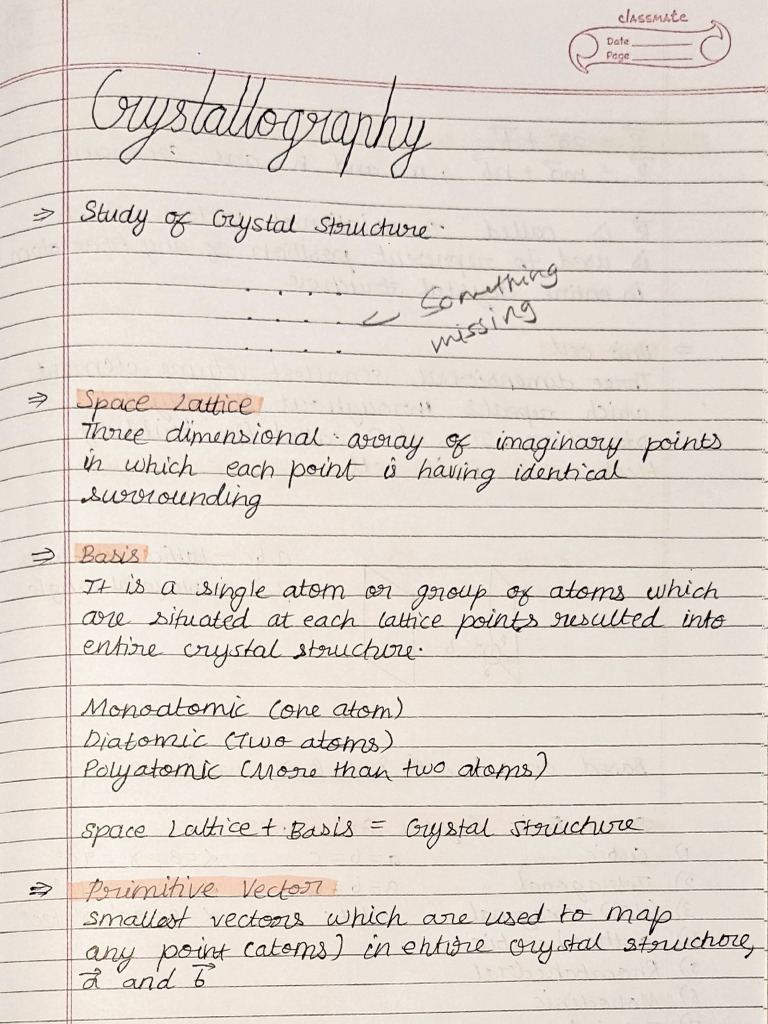 classmate
Date
Page
Crystallography
⇒ Study of Crystal Structure.
Something
missing
⇒ Space Lattice
Three dimensional array of imaginary points
in which each point is having identical
surrounding
⇒ Basis
It is a single atom or group of atoms which
are situated at each lattice points resulted into
entire crystal structure.
Monoatomic (one atom)
Diatomic (Two atoms)
Polyatomic (More than two atoms)
Space Lattice + Basis = Crystal Structure
⇒ Primitive Vector
Smallest vectors which are used to map
any point (atoms) in entire crystal structure,
a⃗ and b⃗